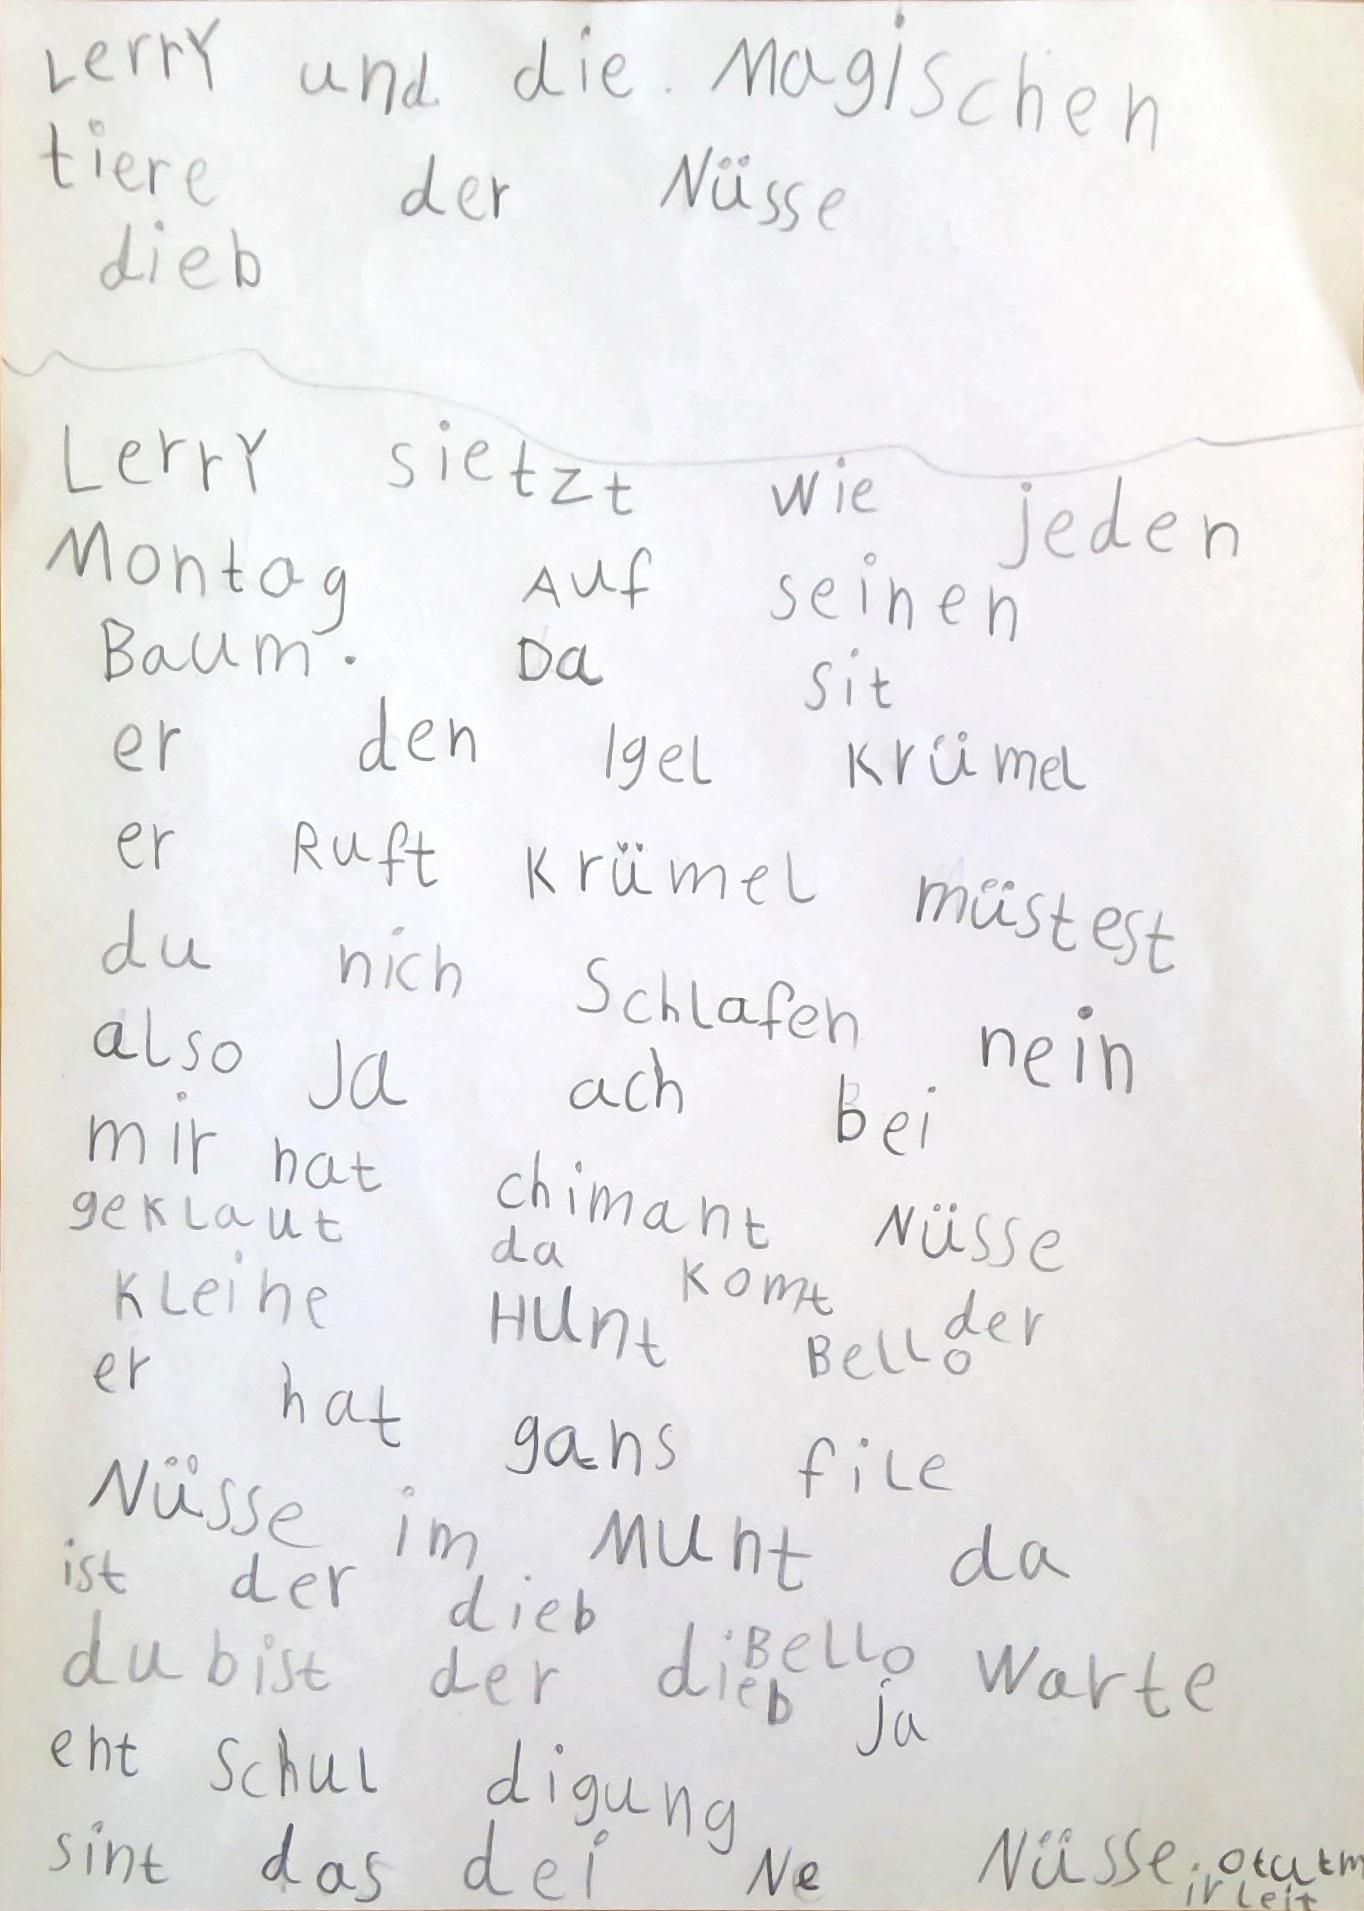 Lerry und die Magischen
tiere der Nüsse
dieb
Lerry sietzt wie jeden
Montag Auf seinen
Baum. Da sit
er den Igel Krümel
er Ruft Krümel müstest
du nich Schlafen nein
also Ja ach bei
mir hat chimant Nüsse
geklaut da komt der
kleine Hunt Bello
er hat gans file
Nüsse im Munt da
ist der dieb Bello warte
du bist der dieb ja
ent Schul digung
sint das dei Ne Nüsse. o tut m
ir leit